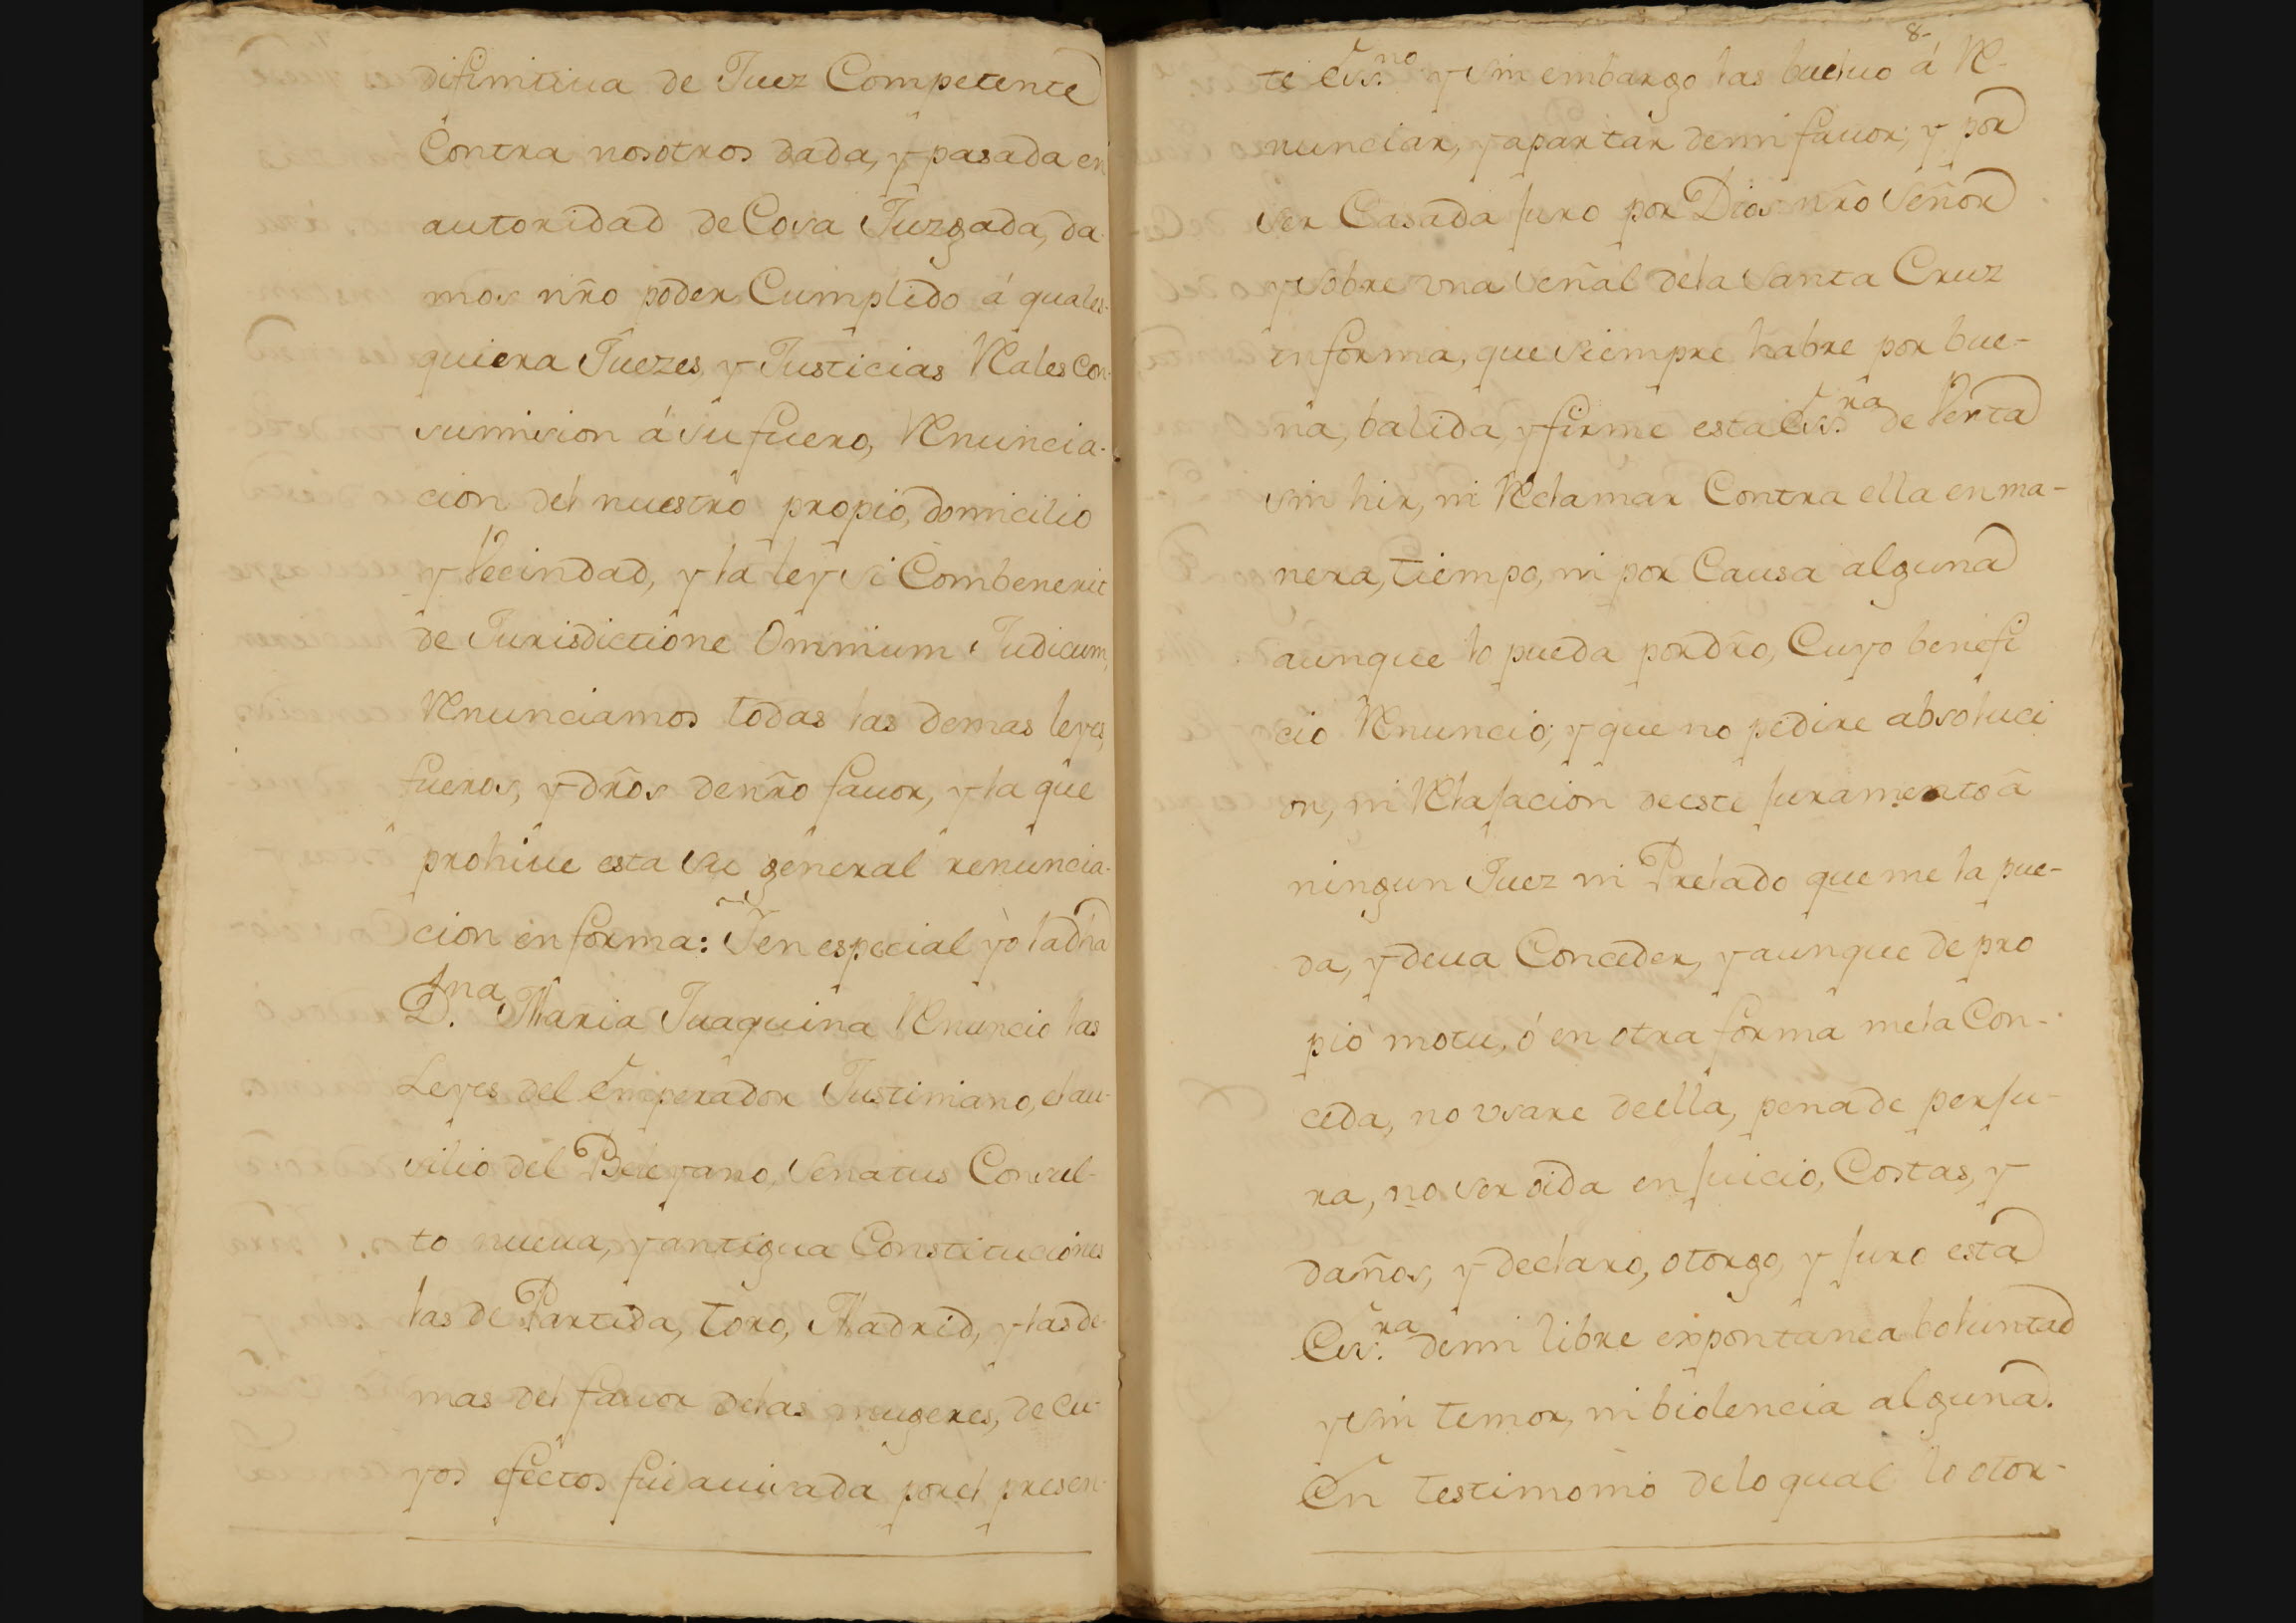 difinitiua de Juez Competente
Contra nosotros dada, y pasada en
autoridad de Cosa Juzgada, da-
mos nr̃o poder Cumplido á quales-
quiera Juezes, y Justicias Rales con
sumision á su fuero, Renuncia-
cion del nuestro propio, domicilio
y Vecindad, y la ley si Combenerit
de Jurisdictione Omnium Judicum,
Renunciamos todas las demas leyes,
fueros, y dr̃os de nr̃o fauor, y la que
prohiue esta su general renuncia-
cion en forma: Y en especial yo la dha
D.ña Maria Juaquina Renuncio las
Leyes del Emperador Justiniano, el au-
silio del Beleyano, Senatus Consul-
to nueua, y antigua Constituciones
las de Partida, Toro, Madrid, y las de-
mas del fauor de las mugeres, de cu-
yos efectos fui auisada por el presen-
8-
te Es.no y sin embargo las bueluo á Re-
nunciar, y apartar de mi fauor; y por
ser Casada juro por Dios nr̃o Señor
y sobre vna Señal de la Santa Cruz
en forma, que siempre habre por bue-
na, balida, y firme esta Es.ra de Venta
sin hir, ni Reclamar Contra ella en ma-
nera, tiempo, ni por Causa alguna
aunque lo pueda por dr̃o, Cuyo benefi
cio Renuncio; y que no pedire absoluci
on, ni Relajacion de este juramento á
ningun Juez ni Prelado que me la pue-
da, y deua Conceder, y aunque de pro
pio motu, ó en otra forma me la Con-
ceda, no vsare de ella, pena de perju-
ra, no ser oida en juicio, Costas, y
daños, y declaro, otorgo, y juro esta
Es.ra de mi libre expontanea boluntad
y sin temor, ni biolencia alguna.
En testimonio de lo qual lo otor-